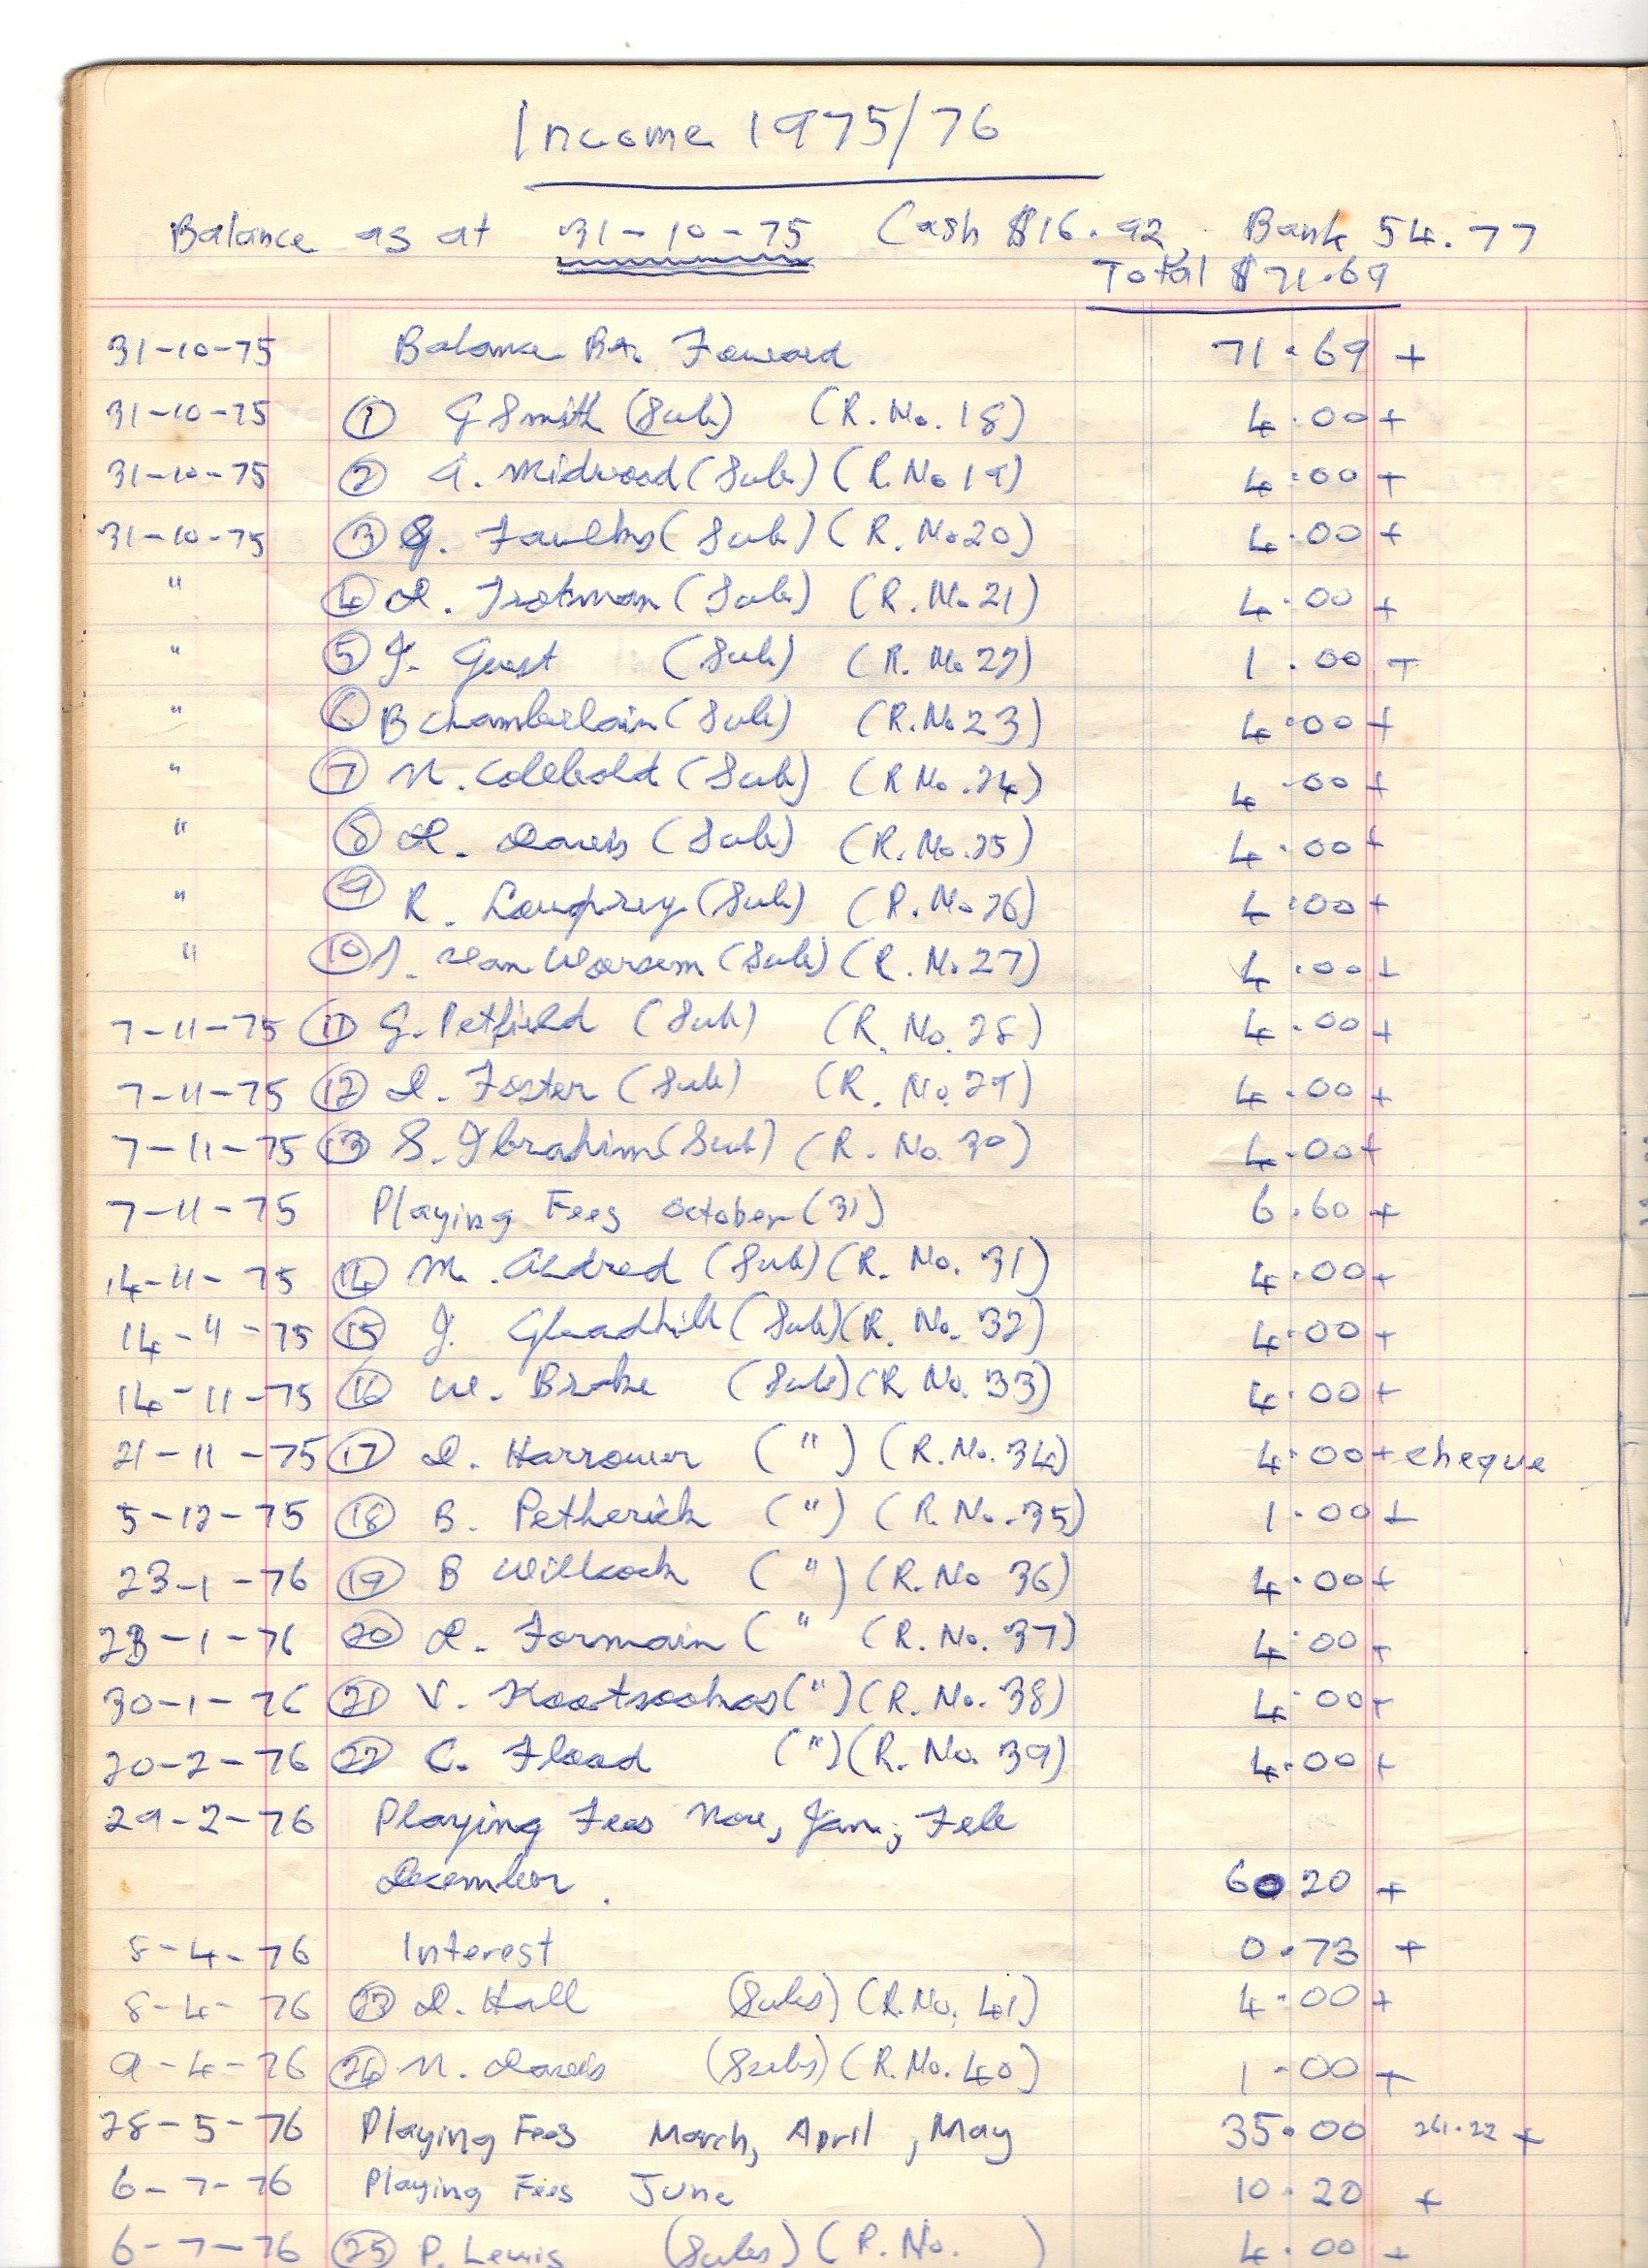 Income 1975/76
Balance as at 31-10-75 Cash $16.92, Bank 54.77
Total $71.69
31-10-75 Balance Forward 71.69 +
31-10-75 (1) G Smith (Sub) (R. No. 18) 4.00 +
31-10-75 (2) A. Midwood (Sub) (R. No 19) 4.00 +
31-10-75 (3) (Sub) (R. No 20) 4.00 +
" (4) D. Trotman (Sub) (R. No 21) 4.00 +
" (5) J. Guest (Sub) (R. No 22) 1.00 +
" (6) B Chamberlain (Sub) (R. No 23) 4.00 +
" (7) N. (Sub) (R No. 24) 4.00 +
" (8) D. Davis (Sub) (R. No. 25) 4.00 +
" (9) R. (Sub) (R. No 26) 4.00 +
" (10) (Sub) (R. No 27) 4.00 +
7-11-75 (11) G. Petfield (Sub) (R. No. 28) 4.00 +
7-11-75 (12) D. Foster (Sub) (R. No. 29) 4.00 +
7-11-75 (13) S. Ibrahim (Sub) (R. No. 30) 4.00 +
7-11-75 Playing Fees October (31) 6.60 +
14-11-75 (14) M. Aldred (Sub) (R. No. 31) 4.00 +
14-11-75 (15) J. Gleadhill (Sub) (R. No. 32) 4.00 +
14-11-75 (16) W. Brake (Sub) (R No. 33) 4.00 +
21-11-75 (17) D. Harrower (") (R. No. 34) 4.00 + cheque
5-12-75 (18) B. Petherick (") (R. No. 35) 1.00 +
23-1-76 (19) B Willcock (") (R. No 36) 4.00 +
23-1-76 (20) D. Formain (" (R. No. 37) 4.00 +
30-1-76 (21) V. (") (R. No. 38) 4.00 +
20-2-76 (22) C. Flood (") (R. No. 39) 4.00 +
29-2-76 Playing Fees Nov, Jan, Feb
December. 60 20 +
8-4-76 Interest 0.73 +
8-4-76 (23) D. Hall (Subs) (R. No. 41) 4.00 +
9-4-76 (24) N. Davis (Subs) (R. No. 40) 1.00 +
28-5-76 Playing Fees March, April, May 35.00 261.22 +
6-7-76 Playing Fees June 10.20 +
6-7-76 (25) P. Lewis (Subs) (R. No. ) 4.00 +